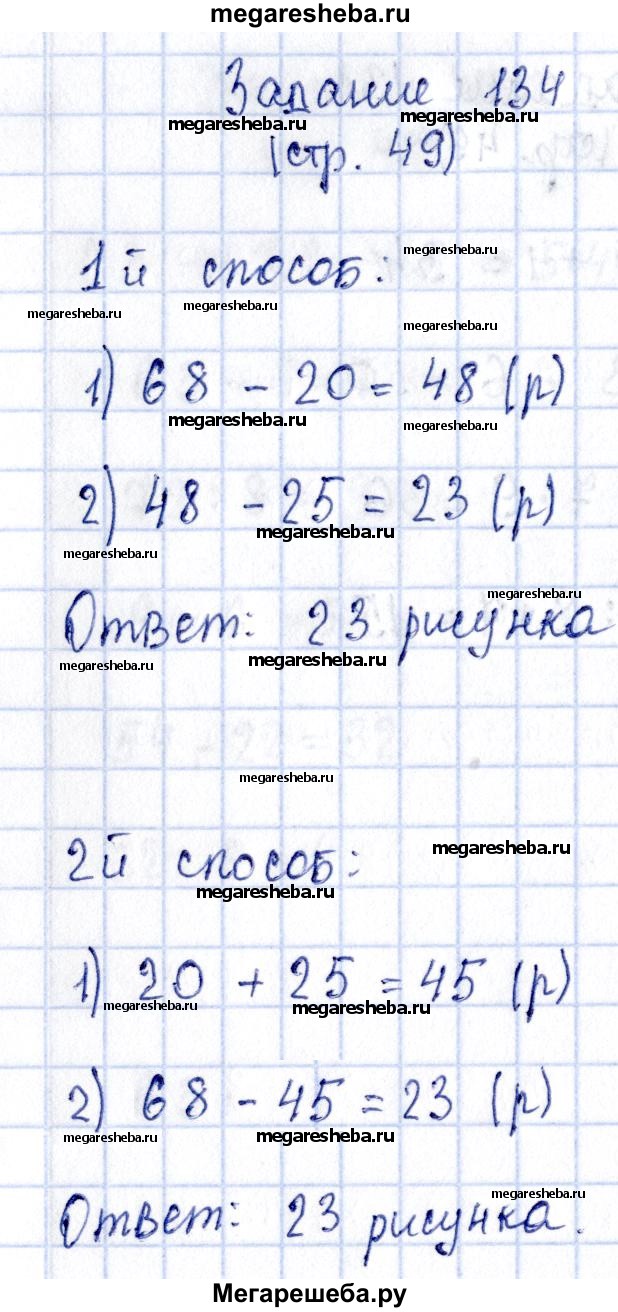 megaresheba.ru
Задание 134
megaresheba.ru megaresheba.ru
(стр. 49)
megaresheba.ru
1й способ:
megaresheba.ru megaresheba.ru
megaresheba.ru
1) 68 - 20 = 48 (р)
megaresheba.ru megaresheba.ru
2) 48 - 25 = 23 (р)
megaresheba.ru megaresheba.ru
megaresheba.ru
Ответ: 23 рисунка
megaresheba.ru megaresheba.ru
megaresheba.ru
megaresheba.ru
2й способ:
megaresheba.ru
1) 20 + 25 = 45 (р)
megaresheba.ru megaresheba.ru
2) 68 - 45 = 23 (р)
megaresheba.ru megaresheba.ru
megaresheba.ru
Ответ: 23 рисунка.
Мегарешеба.ру